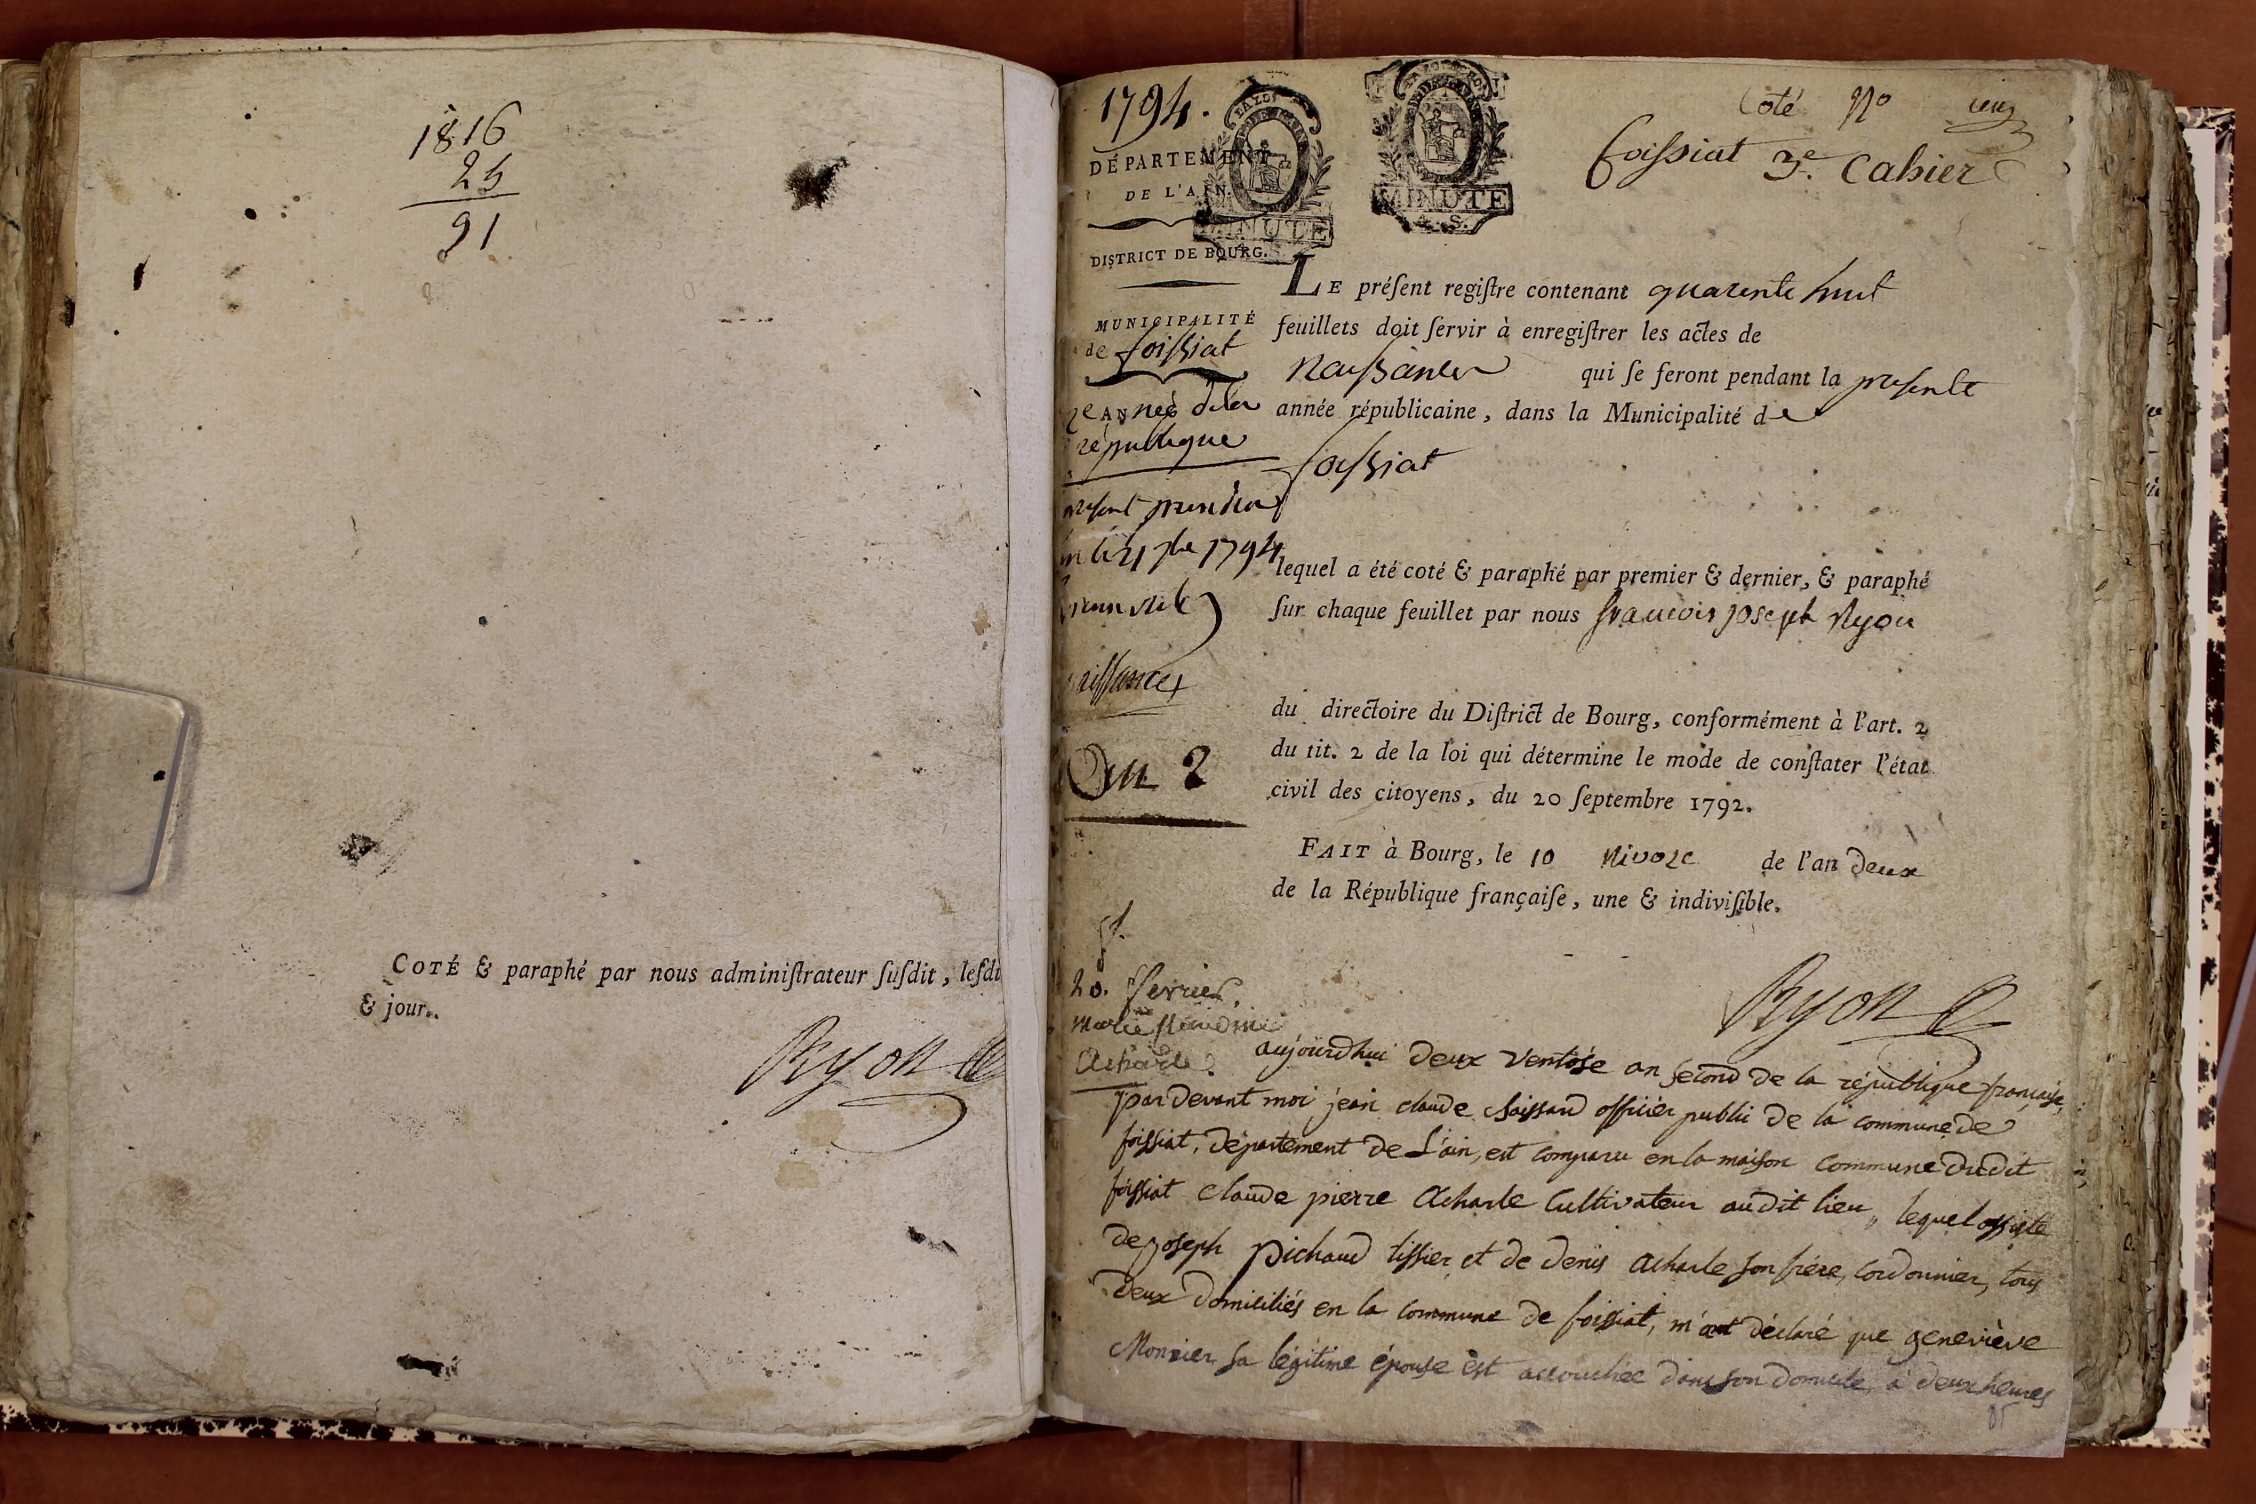 1816
25
91
COTÉ & paraphé par nous adminiſtrateur ſuſdit, leſdi
& jour.
Ryon
1794.
DÉPARTEMENT
DE L'AIN.
DISTRICT DE BOURG.
MUNICIPALITÉ
de foissiat
2e ANNÉE de la
république
le 21 7bre 1794
aissances
an 2
20. fevrier.
marie
acharle
MINUTE
MINUTE
4. S.
Coté No un
foissiat 3e. Cahier
LE préſent regiſtre contenant quarente huit
feuillets doit ſervir à enregiſtrer les actes de
Naissances qui ſe feront pendant la presente
année républicaine, dans la Municipalité de
foissiat
lequel a été coté & paraphé par premier & dernier, & paraphé
ſur chaque feuillet par nous francois joseph Ryon
du directoire du Diſtrict de Bourg, conformément à l'art. 2
du tit. 2 de la loi qui détermine le mode de conſtater l'état
civil des citoyens, du 20 ſeptembre 1792.
FAIT à Bourg, le 10 Nivoze de l'an deux
de la République françaiſe, une & indiviſible.
Ryon
aujourdhui deux ventose an second de la république française,
pardevant moi jean claude officier public de la commune de
foissiat, département de L'ain, est comparu en la maison commune dudit
foissiat claude pierre acharle cultivateur audit lieu, lequel assisté
de joseph pichaud tissier et de denis acharle son frére, cordonnier, tous
deux domiciliés en la commune de foissiat, m'a déclaré que geneviève
Monnier sa légitime épouse est accouchée dans son domicile, à deux heures